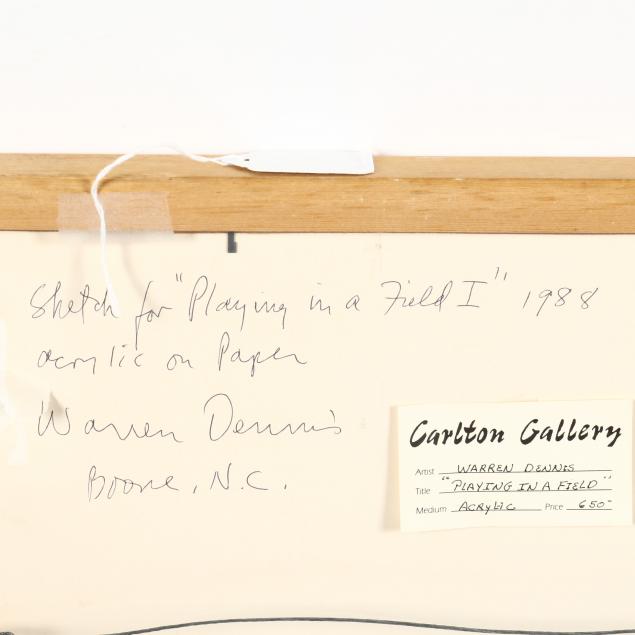 Sketch for "Playing in a Field I" 1988
acrylic on Paper
Warren Dennis
Boone, N.C.
Carlton Gallery
Artist WARREN DENNIS
Title "PLAYING IN A FIELD"
Medium ACRYLIC Price 650-